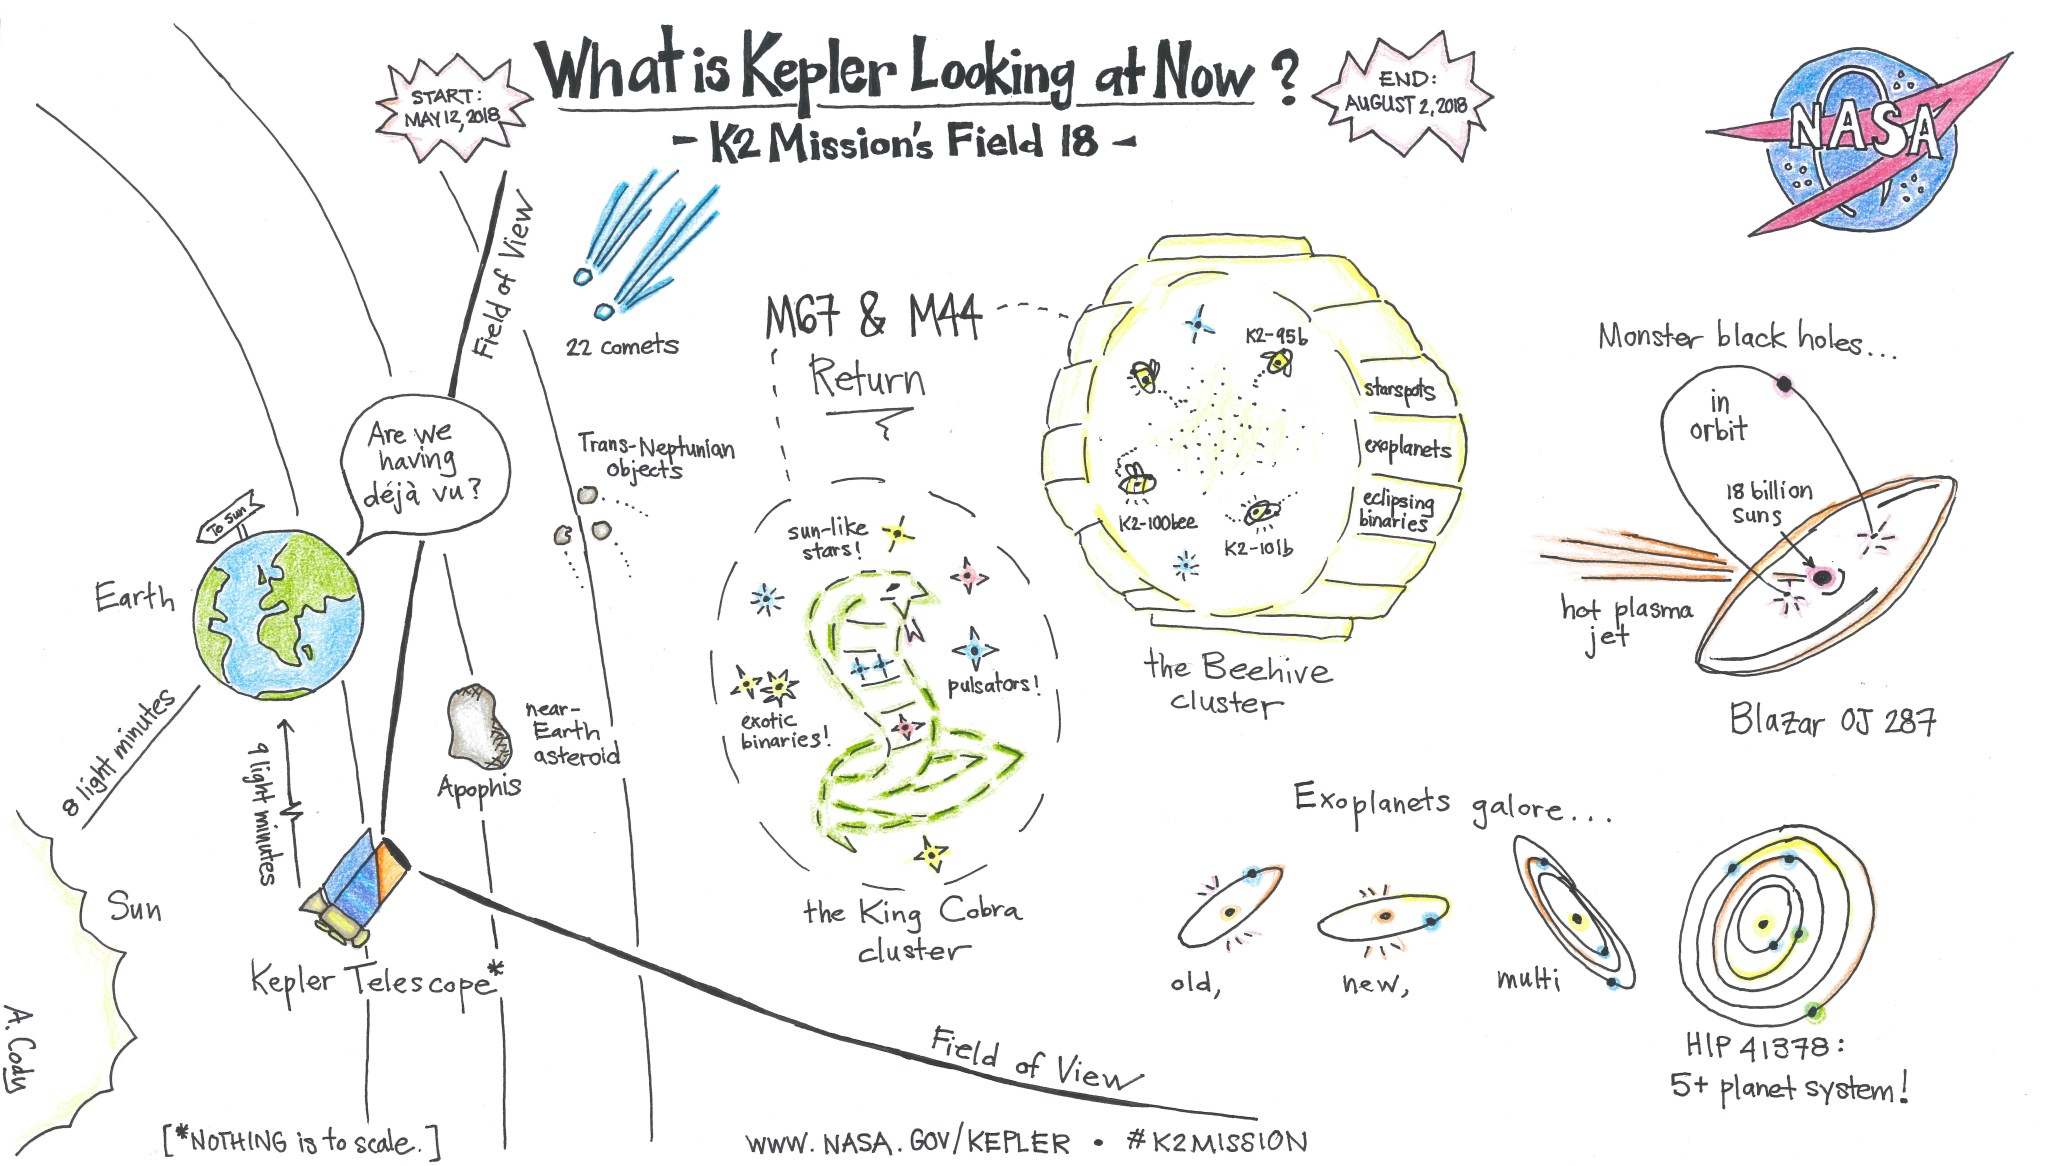 What is Kepler Looking at Now?
- K2 Mission's Field 18 -
START:
MAY 12, 2018
END:
AUGUST 2, 2018
NASA
Field of View
22 comets
M67 & M44
Return
Are we
having
déjà vu?
Trans-Neptunian
objects
To Sun
Earth
8 light minutes
9 light minutes
near-
Earth
asteroid
Apophis
Sun
Kepler Telescope*
A. Cody
sun-like
stars!
pulsators!
exotic
binaries!
the King Cobra
cluster
K2-95b
K2-100bee
K2-101b
starspots
exoplanets
eclipsing
binaries
the Beehive
cluster
Monster black holes...
in
orbit
18 billion
suns
hot plasma
jet
Blazar OJ 287
Exoplanets galore...
old,
new,
multi
HIP 41378:
5+ planet system!
Field of View
[*NOTHING is to scale.]
WWW.NASA.GOV/KEPLER • #K2MISSION